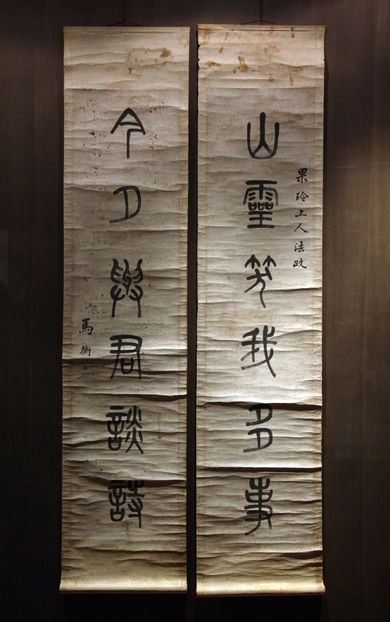 山靈笑我多事
果玲上人法政
今夕與君談詩
馬衡